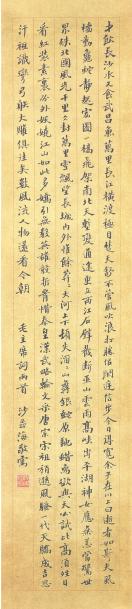 才飲長沙水又食武昌魚萬里長江橫渡極目楚天舒不管風吹浪打勝似閒庭信步今日得寬余子在川上曰逝者如斯夫風
檣動龜蛇靜起宏圖一橋飛架南北天塹變通途更立西江石壁截斷巫山雲雨高峽出平湖神女應無恙當驚世
界殊北國風光千里冰封萬里雪飄望長城內外惟餘莽莽大河上下頓失滔滔山舞銀蛇原馳蠟象欲與天公試比高須晴日
看紅裝素裹分外妖嬈江山如此多嬌引無數英雄競折腰惜秦皇漢武略輸文采唐宗宋祖稍遜風騷一代天驕成吉思
汗祗識彎弓射大雕俱往矣數風流人物還看今朝 毛主席詞兩首 沙孟海敬寫